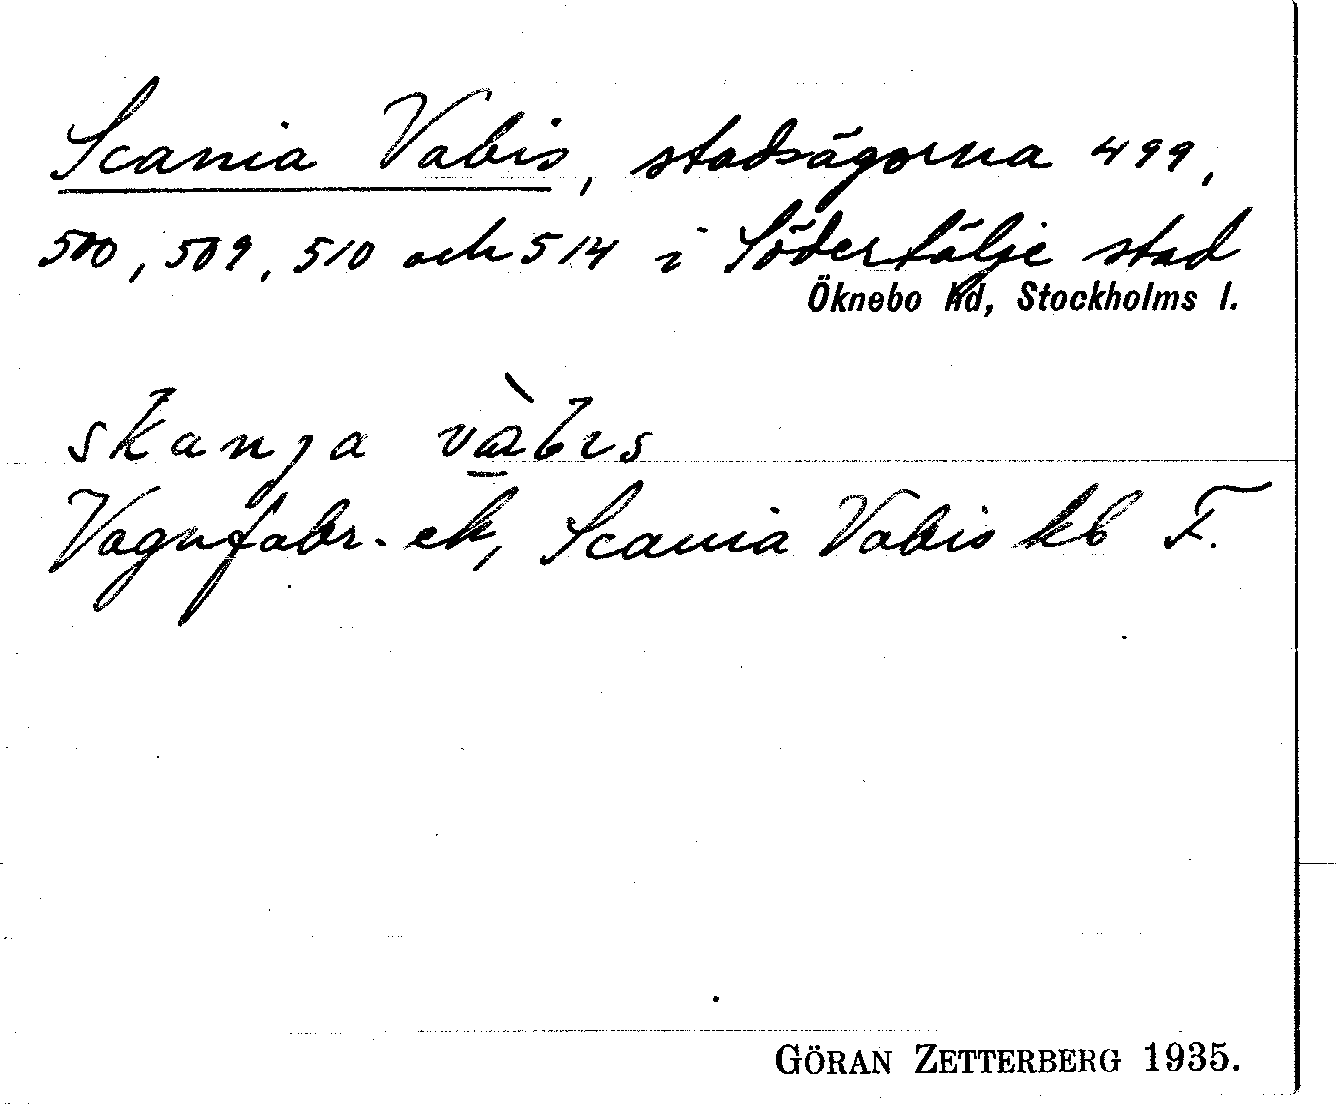 Scania Vabis, stadsägorna 499,
500, 509, 510 och 514 i Södertälje stad
Öknebo hd, Stockholms l.
skanja vàbis
Vagnfabr. ek, Scania Vabis kb F.
GÖRAN ZETTERBERG 1935.